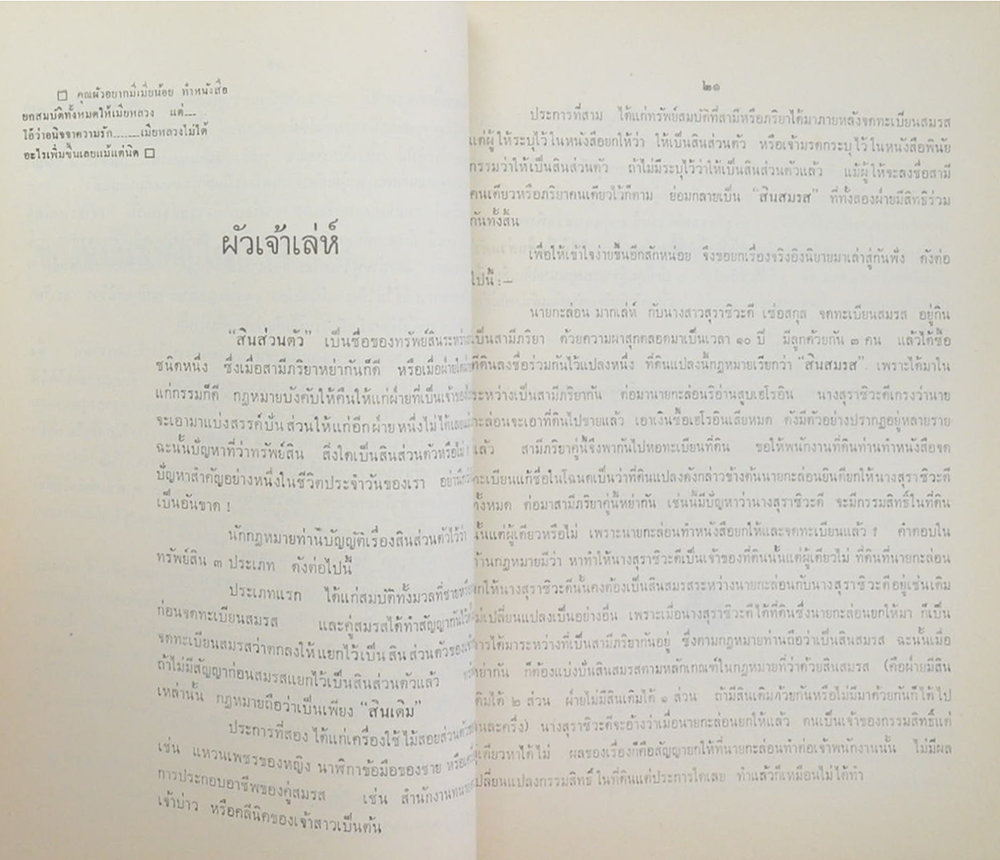 □ คุณผัวอยากมีเมียน้อย ทำหนังสือ
ยกสมบัติทั้งหมดให้เมียหลวง แต่....
โอ้ว่าอนิจจาความรัก........เมียหลวงไม่ได้
อะไรเพิ่มขึ้นเลยแม้แต่นิด □
ผัวเจ้าเล่ห์
“สินส่วนตัว” เป็นชื่อของทรัพย์สินระหว่าง
ชนิดหนึ่ง ซึ่งเมื่อสามีภริยาหย่ากันก็ดี หรือเมื่อฝ่ายใด
แก่กรรมก็ดี กฎหมายบังคับให้คืนให้แก่ฝ่ายที่เป็นเจ้าของ
จะเอามาแบ่งสรรค์ปันส่วนให้แก่อีกฝ่ายหนึ่งไม่ได้
ฉะนั้นปัญหาที่ว่าทรัพย์สิน สิ่งใดเป็นสินส่วนตัวหรือไม่
ปัญหาสำคัญอย่างหนึ่งในชีวิตประจำวันของเรา
เป็นอันขาด !
นักกฎหมายท่านบัญญัติเรื่องสินส่วนตัวไว้ว่า
ทรัพย์สิน ๓ ประเภท ดังต่อไปนี้
ประเภทแรก ได้แก่สมบัติทั้งมวลที่ชาย
ก่อนจดทะเบียนสมรส และคู่สมรสได้ทำสัญญากันไว้
จดทะเบียนสมรสว่าตกลงให้แยกไว้เป็นสินส่วนตัวของ
ถ้าไม่มีสัญญาก่อนสมรสแยกไว้เป็นสินส่วนตัวแล้ว
เหล่านั้น กฎหมายถือว่าเป็นเพียง “สินเดิม”
ประการที่สอง ได้แก่เครื่องใช้ไม้สอยส่วนตัว
เช่น แหวนเพชรของหญิง นาฬิกาข้อมือของชาย หรือ
การประกอบอาชีพของคู่สมรส เช่น สำนักงานทนาย
เจ้าบ่าว หรือคลีนิคของเจ้าสาวเป็นต้น
๒๑
ประการที่สาม ได้แก่ทรัพย์สมบัติที่สามีหรือภริยาได้มาภายหลังจดทะเบียนสมรส
แต่ผู้ให้ระบุไว้ในหนังสือยกให้ว่า ให้เป็นสินส่วนตัว หรือเจ้ามรดกระบุไว้ในหนังสือพินัย
กรรมว่าให้เป็นสินส่วนตัว ถ้าไม่มีระบุไว้ว่าให้เป็นสินส่วนตัวแล้ว แม้ผู้ให้จะลงชื่อสามี
คนเดียวหรือภริยาคนเดียวไว้ก็ตาม ย่อมกลายเป็น “สินสมรส” ที่ทั้งสองฝ่ายมีสิทธิร่วม
กันทั้งสิ้น
เพื่อให้เข้าใจง่ายขึ้นอีกสักหน่อย จึงขอยกเรื่องจริงอิงนิยายมาเล่าสู่กันฟัง ดังต่อ
ไปนี้ :—
นายกะล่อน มากเล่ห์ กับนางสาวสุราชิวะดี เซ่อสกุล จดทะเบียนสมรส อยู่กิน
เป็นสามีภริยา ด้วยความผาสุกตลอดมาเป็นเวลา ๑๐ ปี มีลูกด้วยกัน ๓ คน แล้วได้ซื้อ
ที่ดินลงชื่อร่วมกันไว้แปลงหนึ่ง ที่ดินแปลงนี้กฎหมายเรียกว่า “สินสมรส” เพราะได้มาใน
ระหว่างเป็นสามีภริยากัน ต่อมานายกะล่อนริอ่านสูบเฮโรอิน นางสุราชิวะดีเกรงว่านาย
กะล่อนจะเอาที่ดินไปขายแล้ว เอาเงินซื้อเฮโรอินเสียหมด ดังมีตัวอย่างปรากฏอยู่หลายราย
แล้ว สามีภริยาคู่นี้จึงพากันไปหอทะเบียนที่ดิน ขอให้พนักงานที่ดินท่านทำหนังสือจด
ทะเบียนแก้ชื่อในโฉนดเป็นว่าที่ดินแปลงดังกล่าวข้างต้นนายกะล่อนยินดียกให้นางสุราชิวะดี
ทั้งหมด ต่อมาสามีภริยาคู่นี้หย่ากัน เช่นนี้มีปัญหาว่านางสุราชิวะดี จะมีกรรมสิทธิ์ในที่ดิน
นั้นแต่ผู้เดียวหรือไม่ เพราะนายกะล่อนทำหนังสือยกให้และจดทะเบียนแล้ว ? คำตอบใน
ด้านกฎหมายมีว่า หาทำให้นางสุราชิวะดีเป็นเจ้าของที่ดินนั้นแต่ผู้เดียวไม่ ที่ดินที่นายกะล่อน
ยกให้นางสุราชิวะดีนั้นคงต้องเป็นสินสมรสระหว่างนายกะล่อนกับนางสุราชิวะดีอยู่เช่นเดิม
ไม่เปลี่ยนแปลงเป็นอย่างอื่น เพราะเมื่อนางสุราชิวะดีได้ที่ดินซึ่งนายกะล่อนยกให้มา ก็เป็น
การได้มาระหว่างที่เป็นสามีภริยากันอยู่ ซึ่งตามกฎหมายท่านถือว่าเป็นสินสมรส ฉะนั้นเมื่อ
หย่ากัน ก็ต้องแบ่งปันสินสมรสตามหลักเกณฑ์ในกฎหมายที่ว่าด้วยสินสมรส (คือฝ่ายมีสิน
เดิมได้ ๒ ส่วน ฝ่ายไม่มีสินเดิมได้ ๑ ส่วน ถ้ามีสินเดิมด้วยกันหรือไม่มีมาด้วยกันก็ได้ไป
คนละครึ่ง) นางสุราชิวะดีจะอ้างว่าเมื่อนายกะล่อนยกให้แล้ว ตนเป็นเจ้าของกรรมสิทธิ์แต่
ผู้เดียวหาได้ไม่ ผลของเรื่องก็คือสัญญายกให้ที่นายกะล่อนทำต่อเจ้าพนักงานนั้น ไม่มีผล
เปลี่ยนแปลงกรรมสิทธิ์ในที่ดินแต่ประการใดเลย ทำแล้วก็เหมือนไม่ได้ทำ